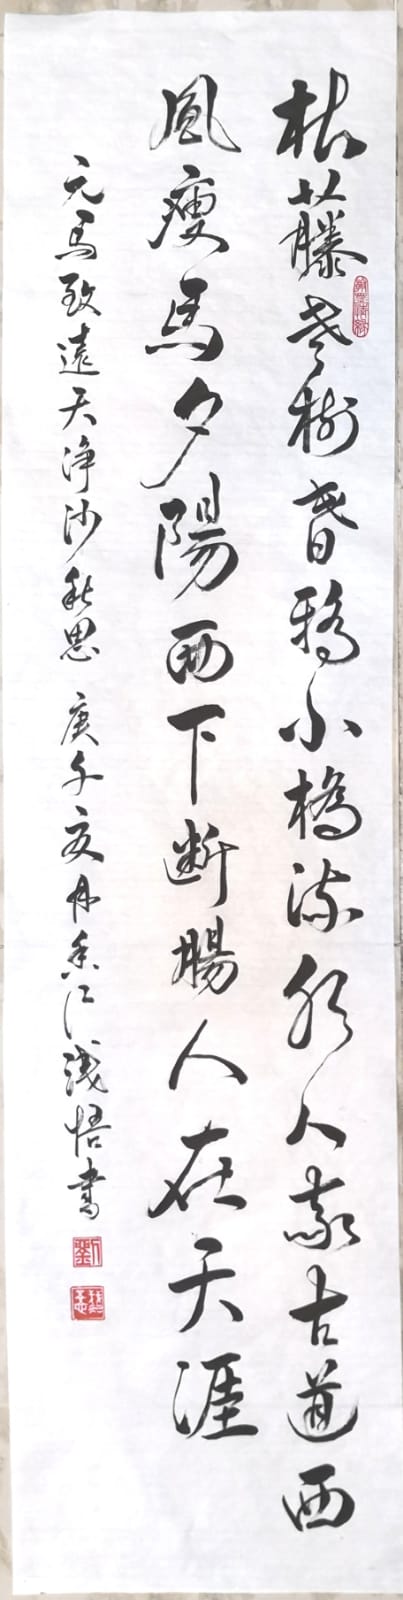 枯藤老樹昏鴉小橋流水人家古道西
風瘦馬夕陽西下斷腸人在天涯
元馬致遠天淨沙秋思 庚子夏月香江淺悟書